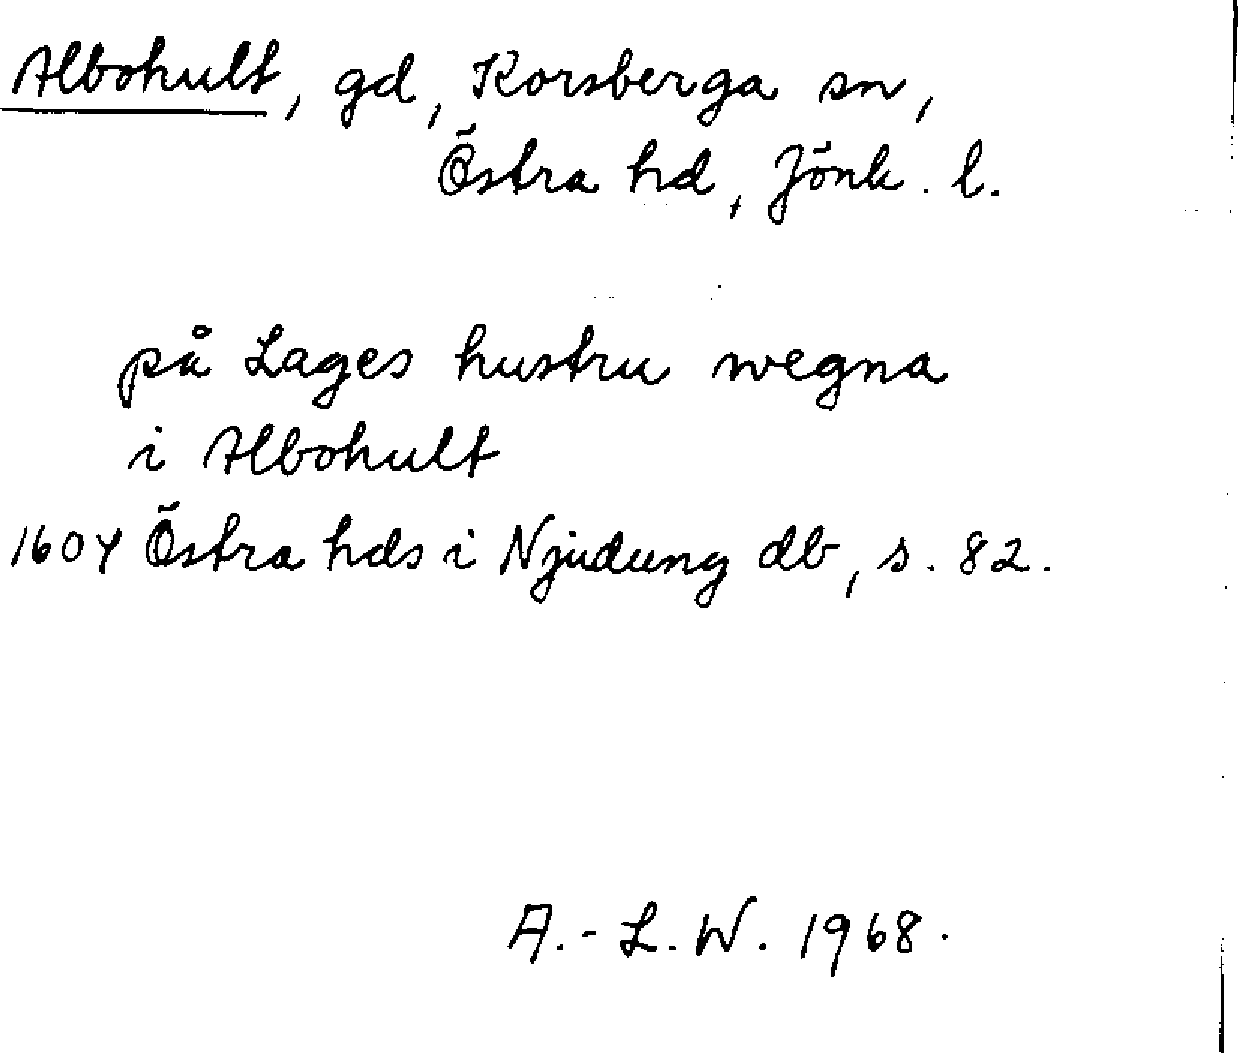 Albohult, gd, Korsberga sn,
Östra hd, Jönk. l.
på Lages hustru wegna
i Albohult
1604 Östra hds i Njudung db, s. 82.
A.-L.W. 1968.